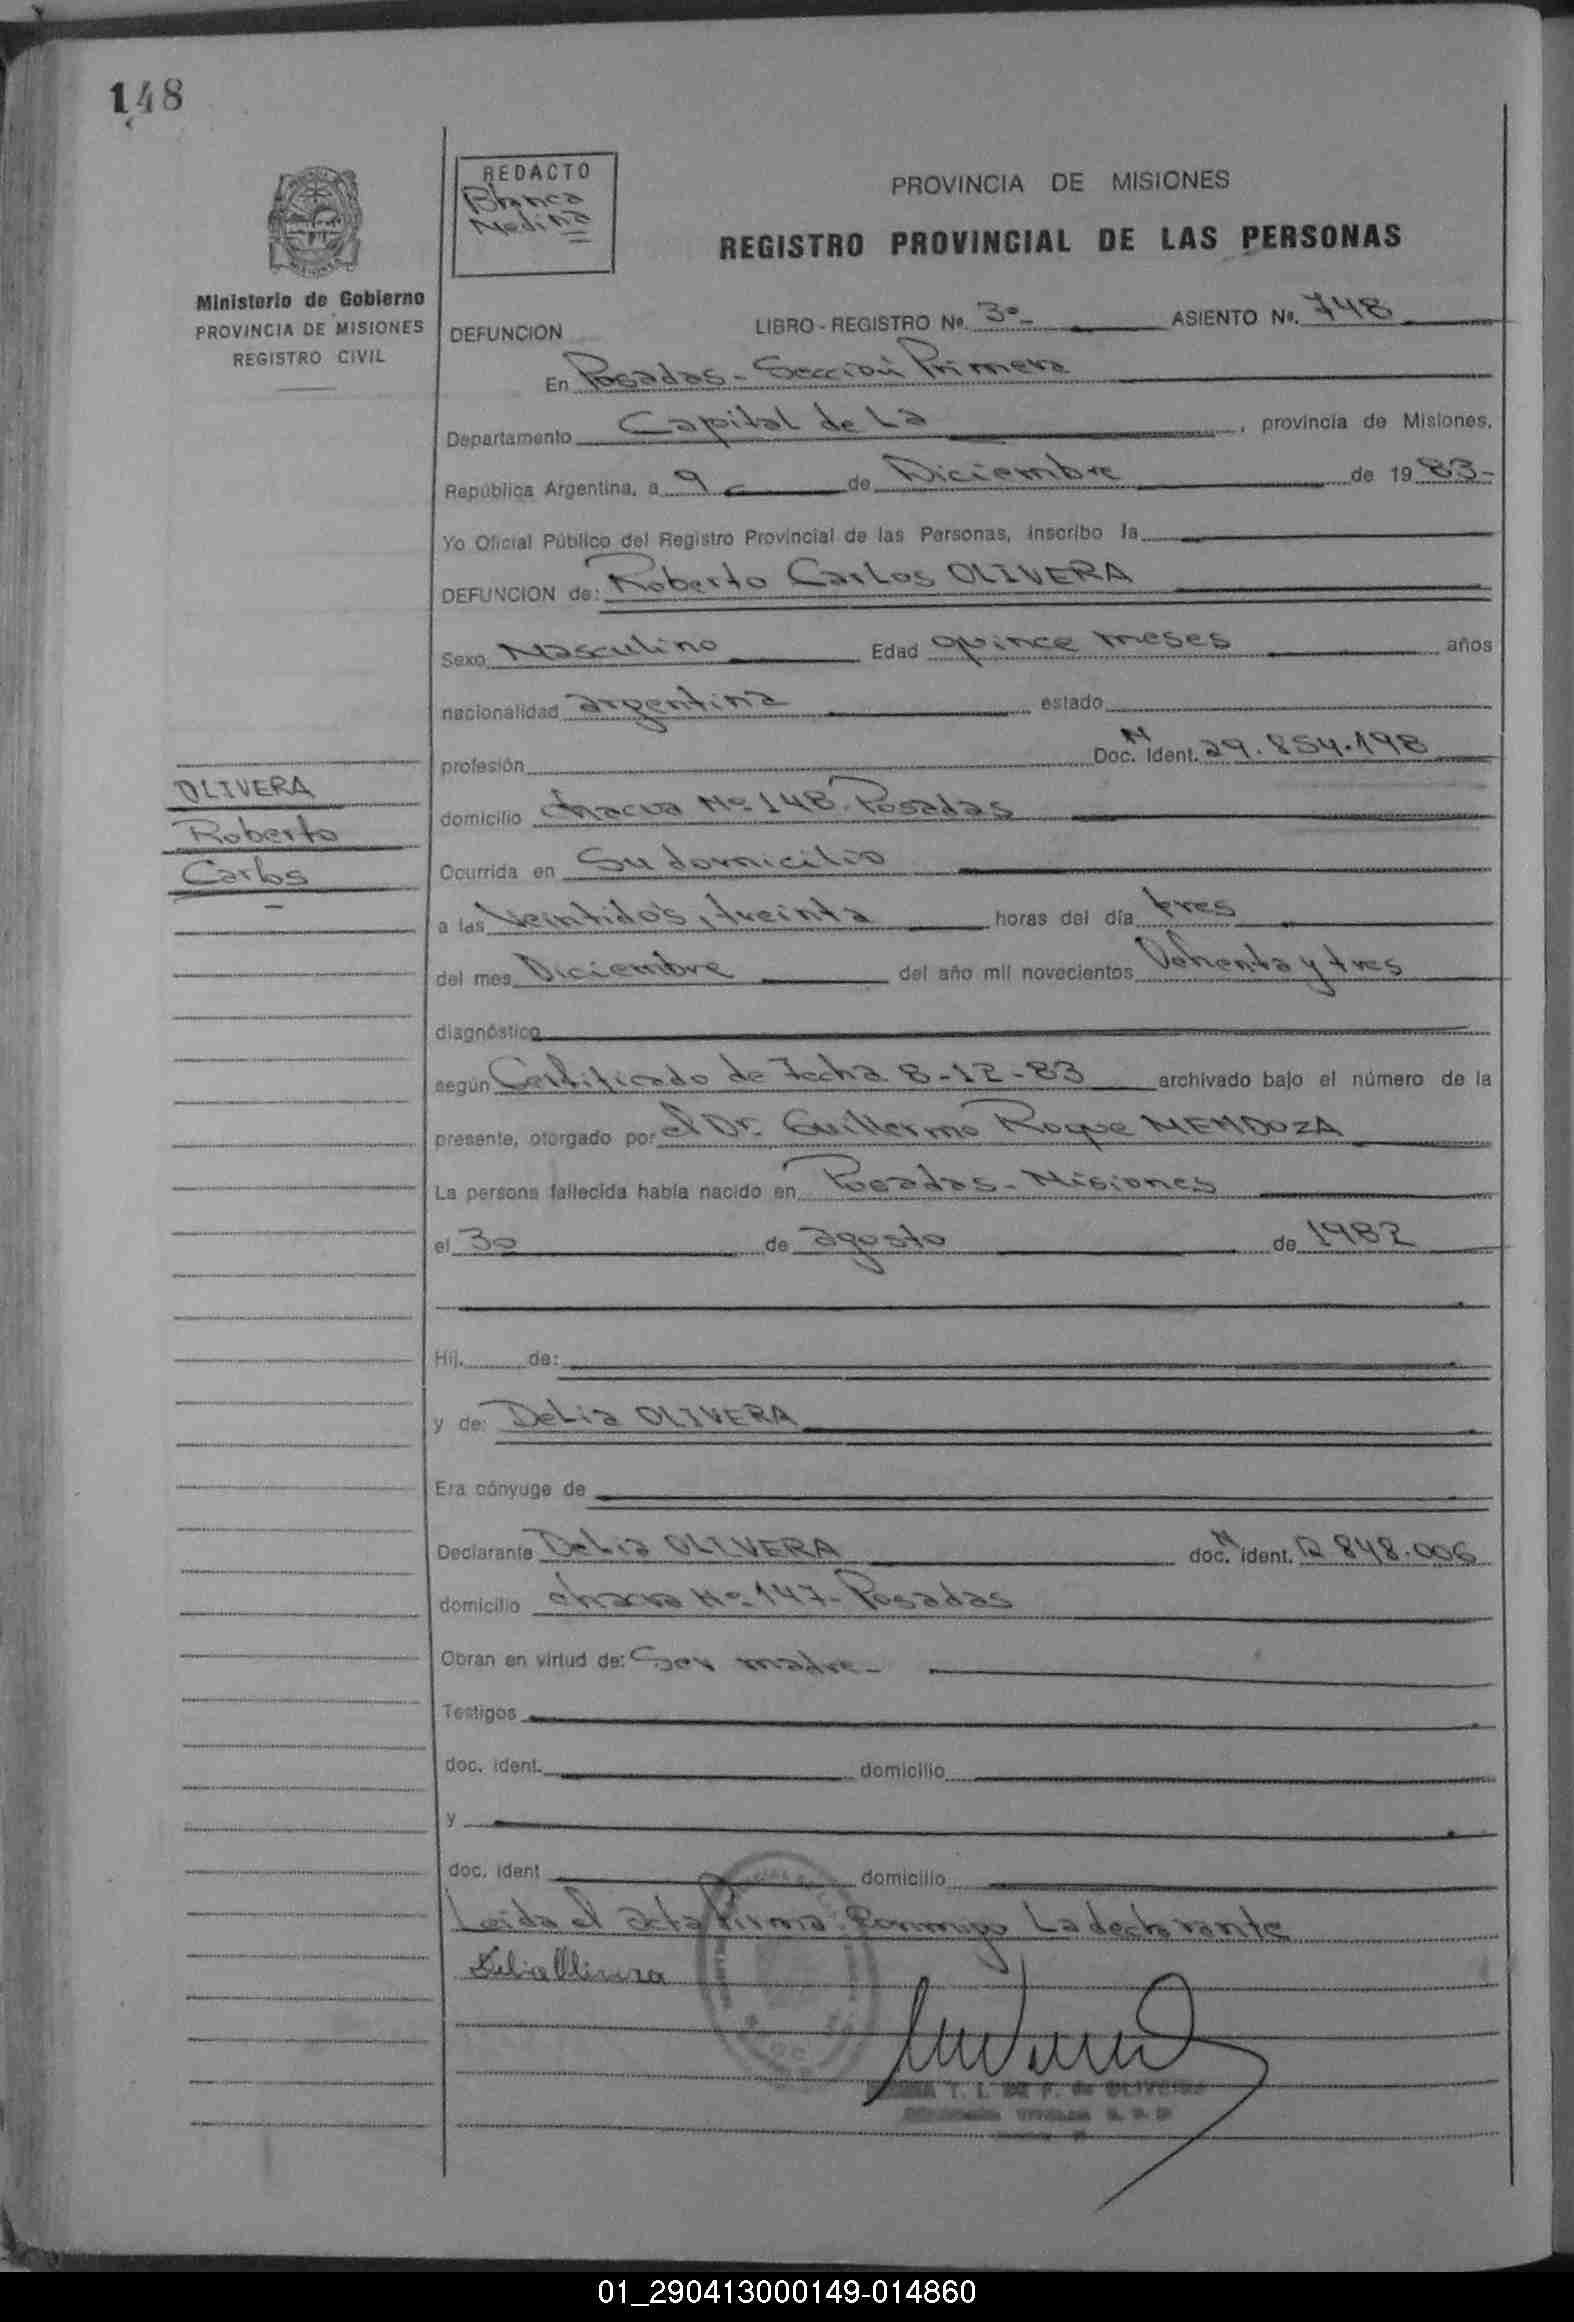 148
REDACTO
Blanca
Medina
Ministerio de Gobierno
PROVINCIA DE MISIONES
REGISTRO CIVIL
PROVINCIA DE MISIONES
REGISTRO PROVINCIAL DE LAS PERSONAS
DEFUNCION LIBRO - REGISTRO Nº. 3º- ASIENTO Nº. 748
En Posadas - Sección Primera
Departamento Capital de La , provincia de Misiones,
República Argentina, a 9 de Diciembre de 1983-
Yo Oficial Público del Registro Provincial de las Personas, inscribo la
DEFUNCION de: Roberto Carlos OLIVERA
Sexo Masculino Edad quince meses años
nacionalidad argentina estado
profesión Doc. N Ident. 29.854.198
OLIVERA
Roberto
Carlos
domicilio chacra Nº 148. Posadas
Ocurrida en Su domicilio
a las Veintidós, treinta horas del día tres
del mes Diciembre del año mil novecientos Ochenta y tres
diagnóstico
según Certificado de fecha 8-12-83 archivado bajo el número de la
presente, otorgado por el Dr. Guillermo Roque MENDOZA
La persona fallecida había nacido en Posadas - Misiones
el 30 de agosto de 1982
Hij. de:
y de: Delia OLIVERA
Era cónyuge de
Declarante Delia OLIVERA doc. N ident. 12 848.006
domicilio chacra Nº 147- Posadas
Obran en virtud de: Ser madre-
Testigos
doc. ident. domicilio
y
doc. ident domicilio
Leida el acta firma Conmigo La declarante
Delia Olivera
01_290413000149-014860